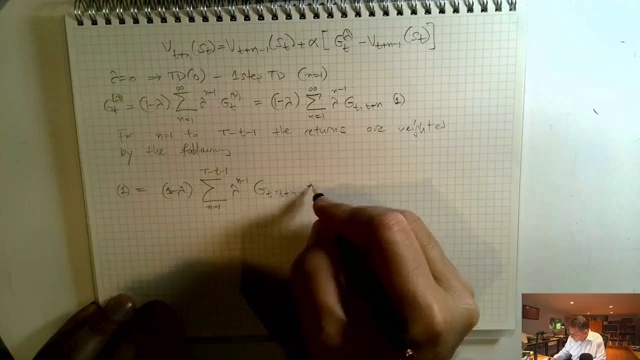 V_{t+n}(S_t) = V_{t+n-1}(S_t) + α [G_t^λ − V_{t+n-1}(S_t)]
λ=0 ⇒ TD(0) - 1 step TD (n=1)
G_t^{(λ)} = (1-λ) ∑_{n=1}^{∞} λ^{n-1} G_t^{(n)} = (1-λ) ∑_{n=1}^{∞} λ^{n-1} G_{t:t+n} (1)
For n=1 to T-t-1 the returns are weighted
by the following
(1) = (1-λ) ∑_{n=1}^{T-t-1} λ^{n-1} G_{t:t+n}